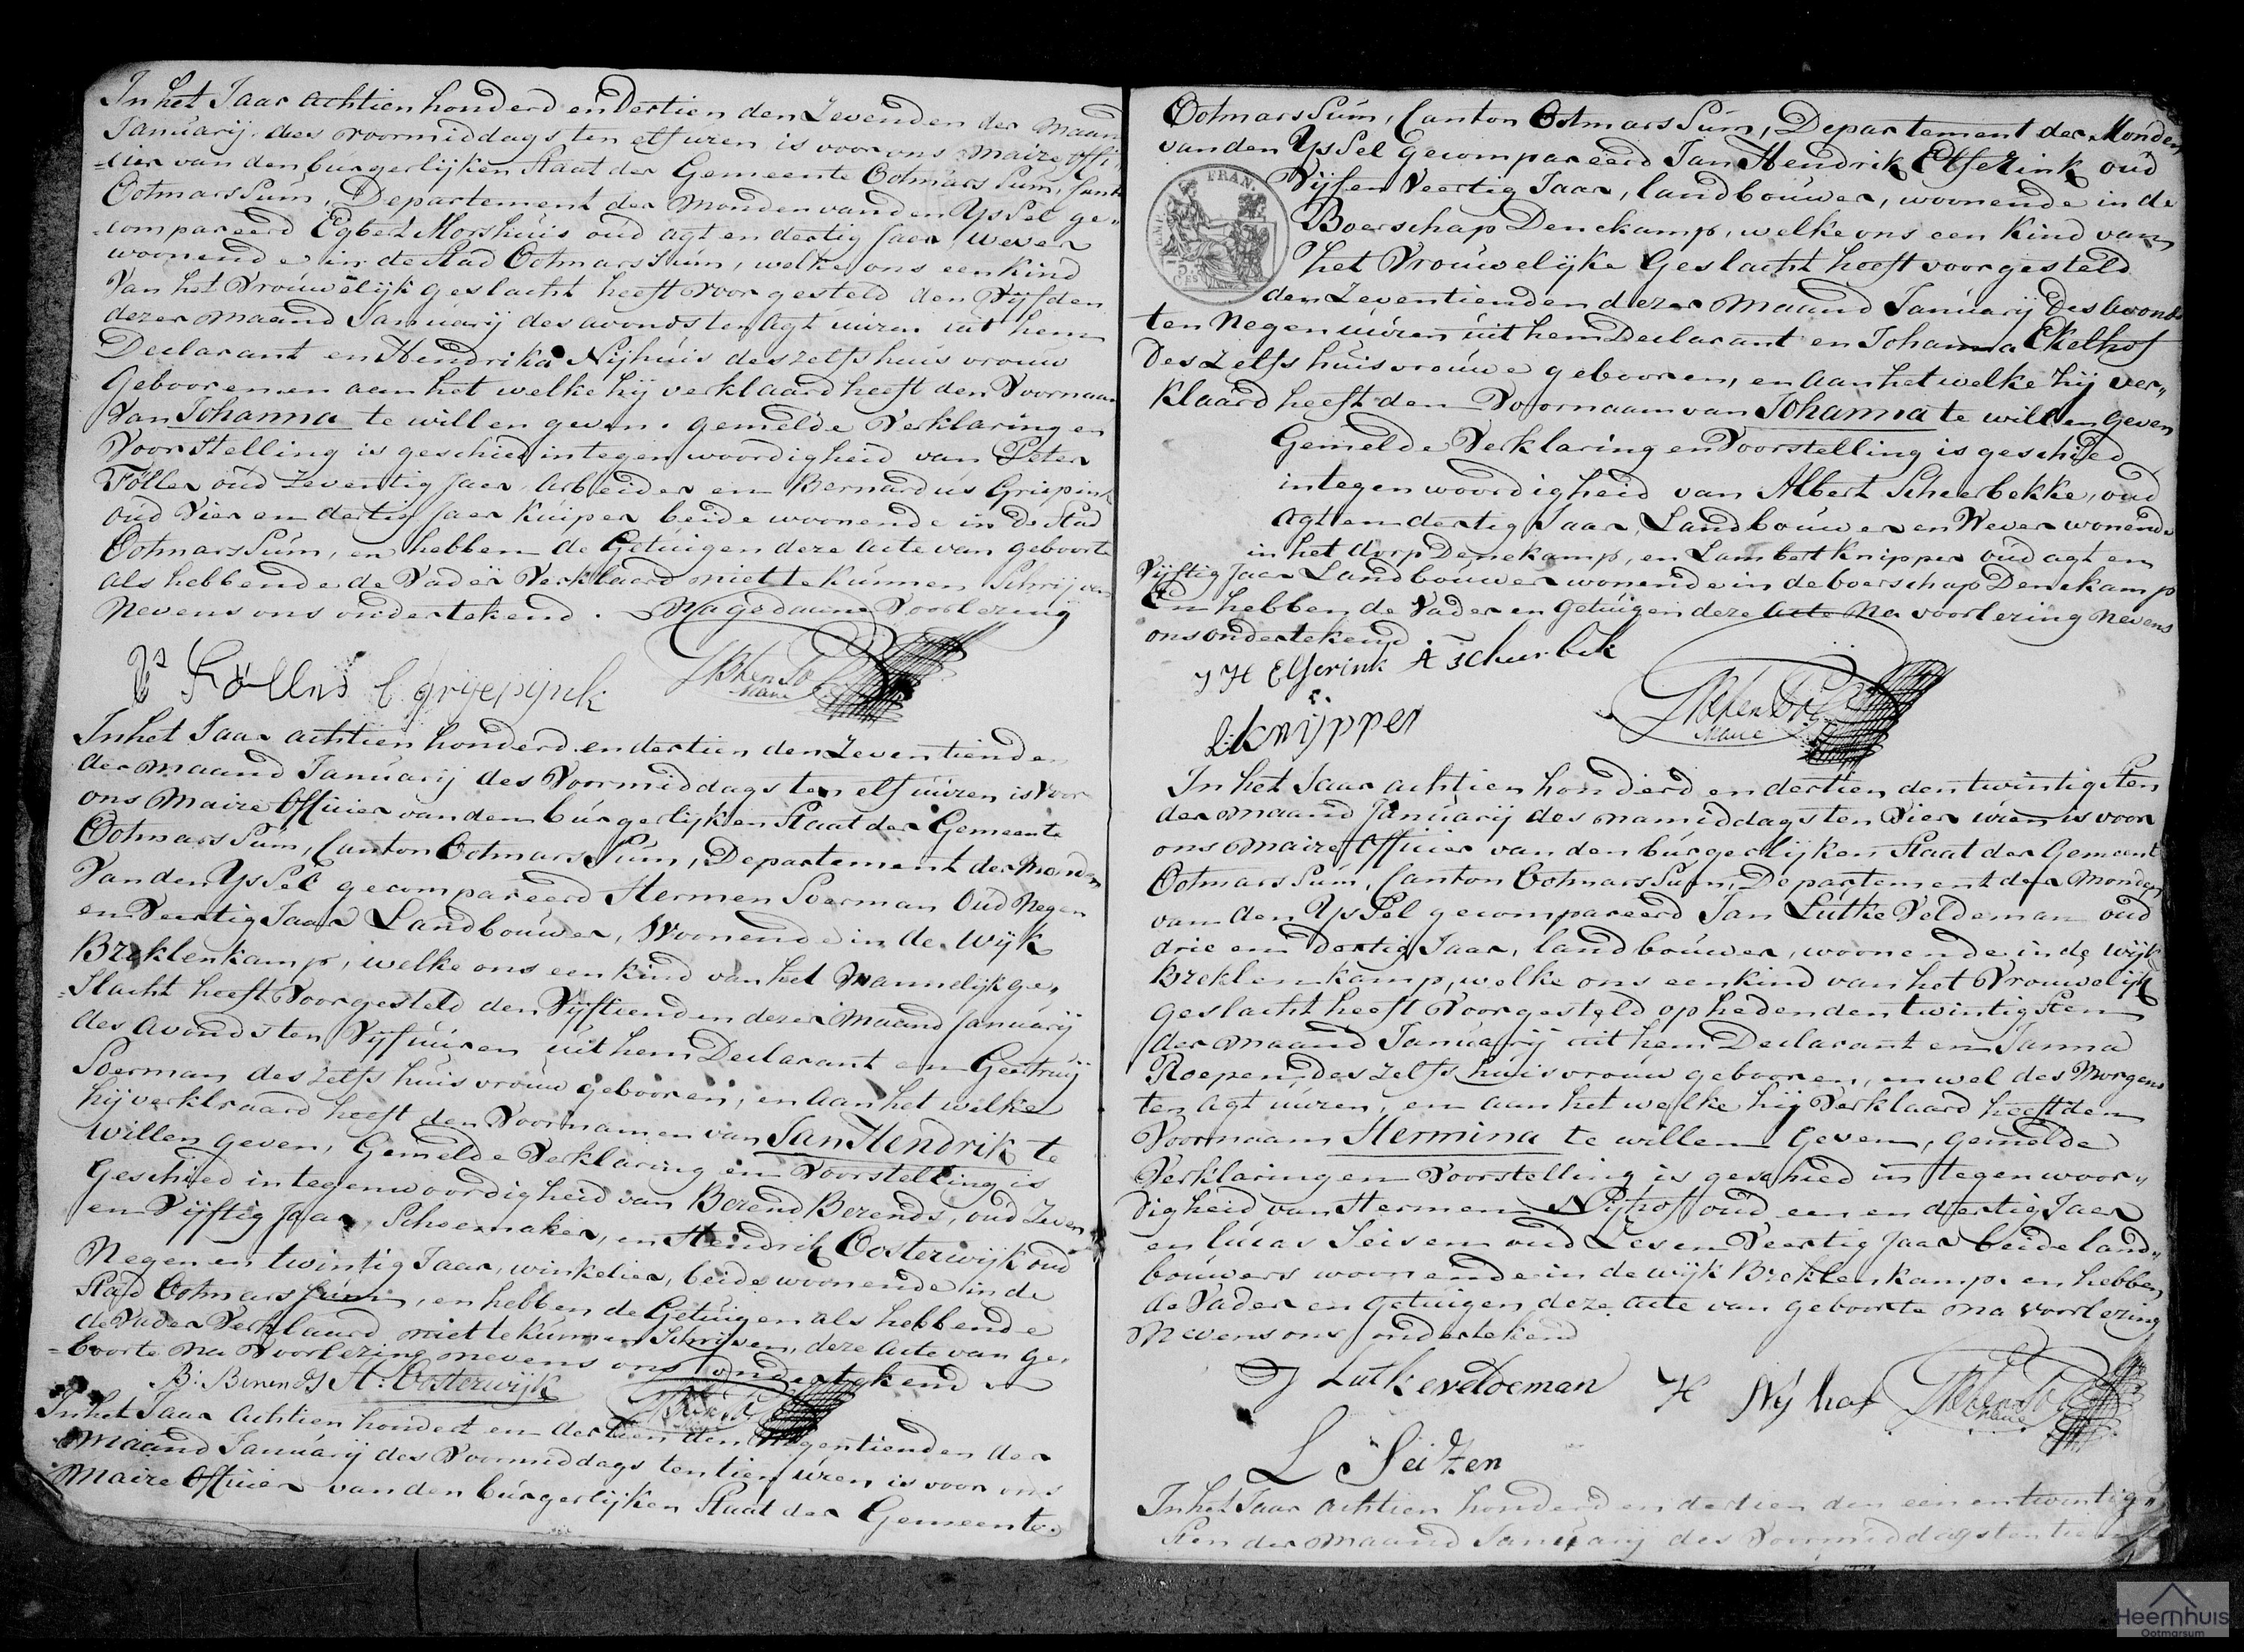 In het Jaar achtien honderd en Dertien den Zevenden der Maand
Januarij des voormiddags ten elf uren is voor ons Maire offi¬
=cier van den burgerlijken Staat der Gemeente Ootmarssum, Cant
Ootmarssum, Departement der Monden van den Yssel ge¬
=compareerd Egbert Morshuis oud agt en dertig Jaer, wever
woonende in de Stad Ootmarssum, welke ons een kind
Van het Vrouwelijk geslacht heeft voor gesteld den Vijfden
dezer maand Januarij des avonds ten agt uuren uit hem
Declarant en Hendrika Nijhuis deszelfs huis vrouw
Gebooren en aan het welke hij verklaard heeft den Voornaam
Van Johanna te willen geven. gemelde Verklaring en
Voorstelling is geschied in tegenwoordigheid van Peter
Föller oud Zeventig Jaer Arbeider en Bernardus Griepink
oud Vier en dertig Jaer Kuiper beide woonende in de Stad
Ootmarssum, en hebben de Getuigen deze acte van geboorte
als hebbende de Vader Verklaard niet te kunnen Schrijven
Nevens ons ondertekend. Na gedaane Voorlezing
Ps Föllns B grijepijnk
Maire
In het Jaar achtien honderd en dertien den Zeventienden
der maand Januarij des Voormiddags ten elf uuren is voor
ons Maire Officier van den burgerlijken Staat der Gemeente
Ootmarssum, Canton Ootmarssum, Departement der Monden
Van den Yssel gecompareerd Hermen Soerman Oud Negen
en Veertig Jaar Landbouwer, Woonende in de Wijk
Breklenkamp, welke ons een kind van het Mannelijk ge¬
=slacht heeft Voorgesteld den Vijftienden dezer Maand Januarij
des Avonds ten Vijf uuren uit hem Declarant en Geertruij
Soerman deszelfs huis vrouw gebooren, en aan het welke
hij verklraard heeft den Voornamen van Jan Hendrik te
willen geven, Gemelde Verklaring en Voorstelling is
Geschied in tegenwoordigheid van Berend Berends, oud Zeven
en Vijftig Jaar, Schoemaker, en Hendrik Oosterwijk oud
Negen en twintig Jaar, winkelier, beide woonende in de
Stad Ootmarssum, en hebben de Getuigen als hebbende
de Vader Verklaard niet te kunnen Schrijven, deze Acte van ge¬
=boorte na Voorlezing nevens ons ondertekend
B: Berends H: Oosterwijk
In het Jaar Achtien honderd en dertien den Negentienden der
Maand Januarij des Voormiddags ten tien uren is voor ons
Maire Officier van den burgerlijken Staat der Gemeente
Ootmarssum, Canton Ootmarssum, Departement der Monden
van den Yssel Gecompareerd Jan Hendrik Elferink oud
Vijf en Veertig Jaar, landbouwer, woonende in de
Boerschap Denekamp, welke ons een kind van
het Vrouwelijke Geslacht heeft voorgesteld
den Zeventienden dezer Maand Januarij des Avonds
ten Negen uuren uit hem Declarant en Johanna Ekelhof
deszelfs huisvrouwe gebooren, en aan het welke hij ver¬
Klaard heeft den Voornaam van Johanna te willen geven
Gemelde Verklaring en Voorstelling is geschied
in tegenwoordigheid van Albert Scheerbekke, oud
Agt en dertig Jaar, Landbouwer en Wever wonende
in het dorp Denekamp, en Lambert Knipper oud agt en
Vijftig Jaer Landbouwer wonende in de boerschap Denekamp
En hebben de Vader en Getuigen deze acte Na voorlezing Nevens
ons ondertekend.
J H Elferink A Scheurbek
L: Knijpper
Maire
In het Jaar achtien honderd en dertien den twintigsten
der maand Januarij des namiddags ten Vier uren is voor
ons Maire Officier van den burgerlijken Staat der Gemeente
Ootmarssum, Canton Ootmarssum, Departement der Monden
van den Yssel gecompareerd Jan Lutke Veldeman oud
drie en Dertig Jaar, landbouwer, woonende in de wijk
Breklenkamp, welke ons een kind van het Vrouwelijk
geslacht heeft Voorgesteld op heden den twintigsten
der maand Januarij uit hem Declarant en Janna
Roepen, deszelfs huisvrouw gebooren, en wel des Morgens
ten Agt uuren, en aan het welke hij Verklaard heeft den
Voornaam Hermina te willen Geven, gemelde
Verklaring en Voorstelling is geschied in tegenwoor¬
digheid van Hermen Nijhof oud een en dertig Jaer
en Lucas Seisen oud Zes en Veertig Jaar beide land¬
bouwers woonende in de wijk Breklenkamp. en hebben
de Vader en getuigen deze acte van geboorte na voorlezing
Nevens ons ondertekend
J Lutkeveldeman H Nijhof
Maire
L Seitzen
In het Jaar achtien honderd en dertien den een en twintig¬
sten der maand Januarij des Voormiddags ten tien
EMP. FRAN.
Heemhuis
Ootmarsum